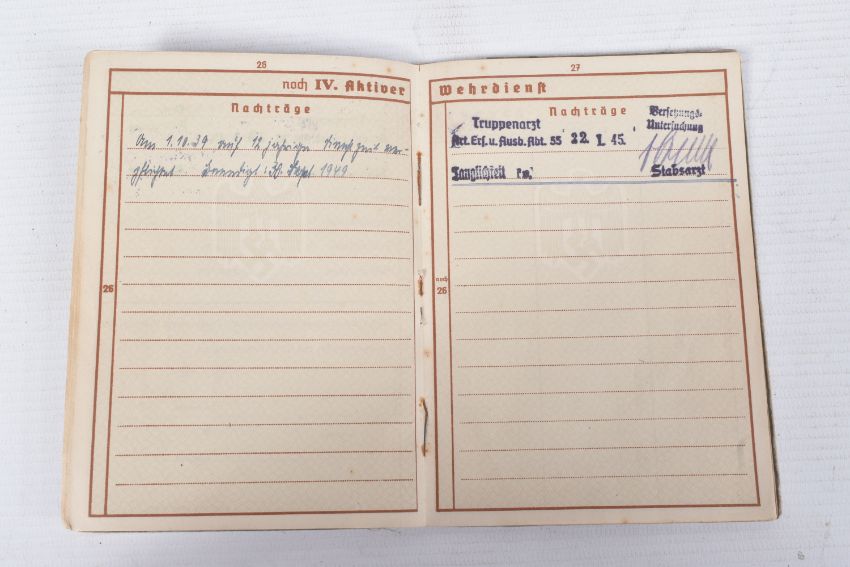 26
noch IV. Aktiver
Nachträge
Am 1.10.39 auf 12 jährige Dienstzeit ver-
pflichtet. Beendigt: 30. Sept. 1949
26
27
Wehrdienst
Nachträge
Versetzungs-
Untersuchung
Truppenarzt
Art. Ers. u. Ausb. Abt. 55 22. 1. 45.
Tauglichkeit kv.
Stabsarzt
noch
26